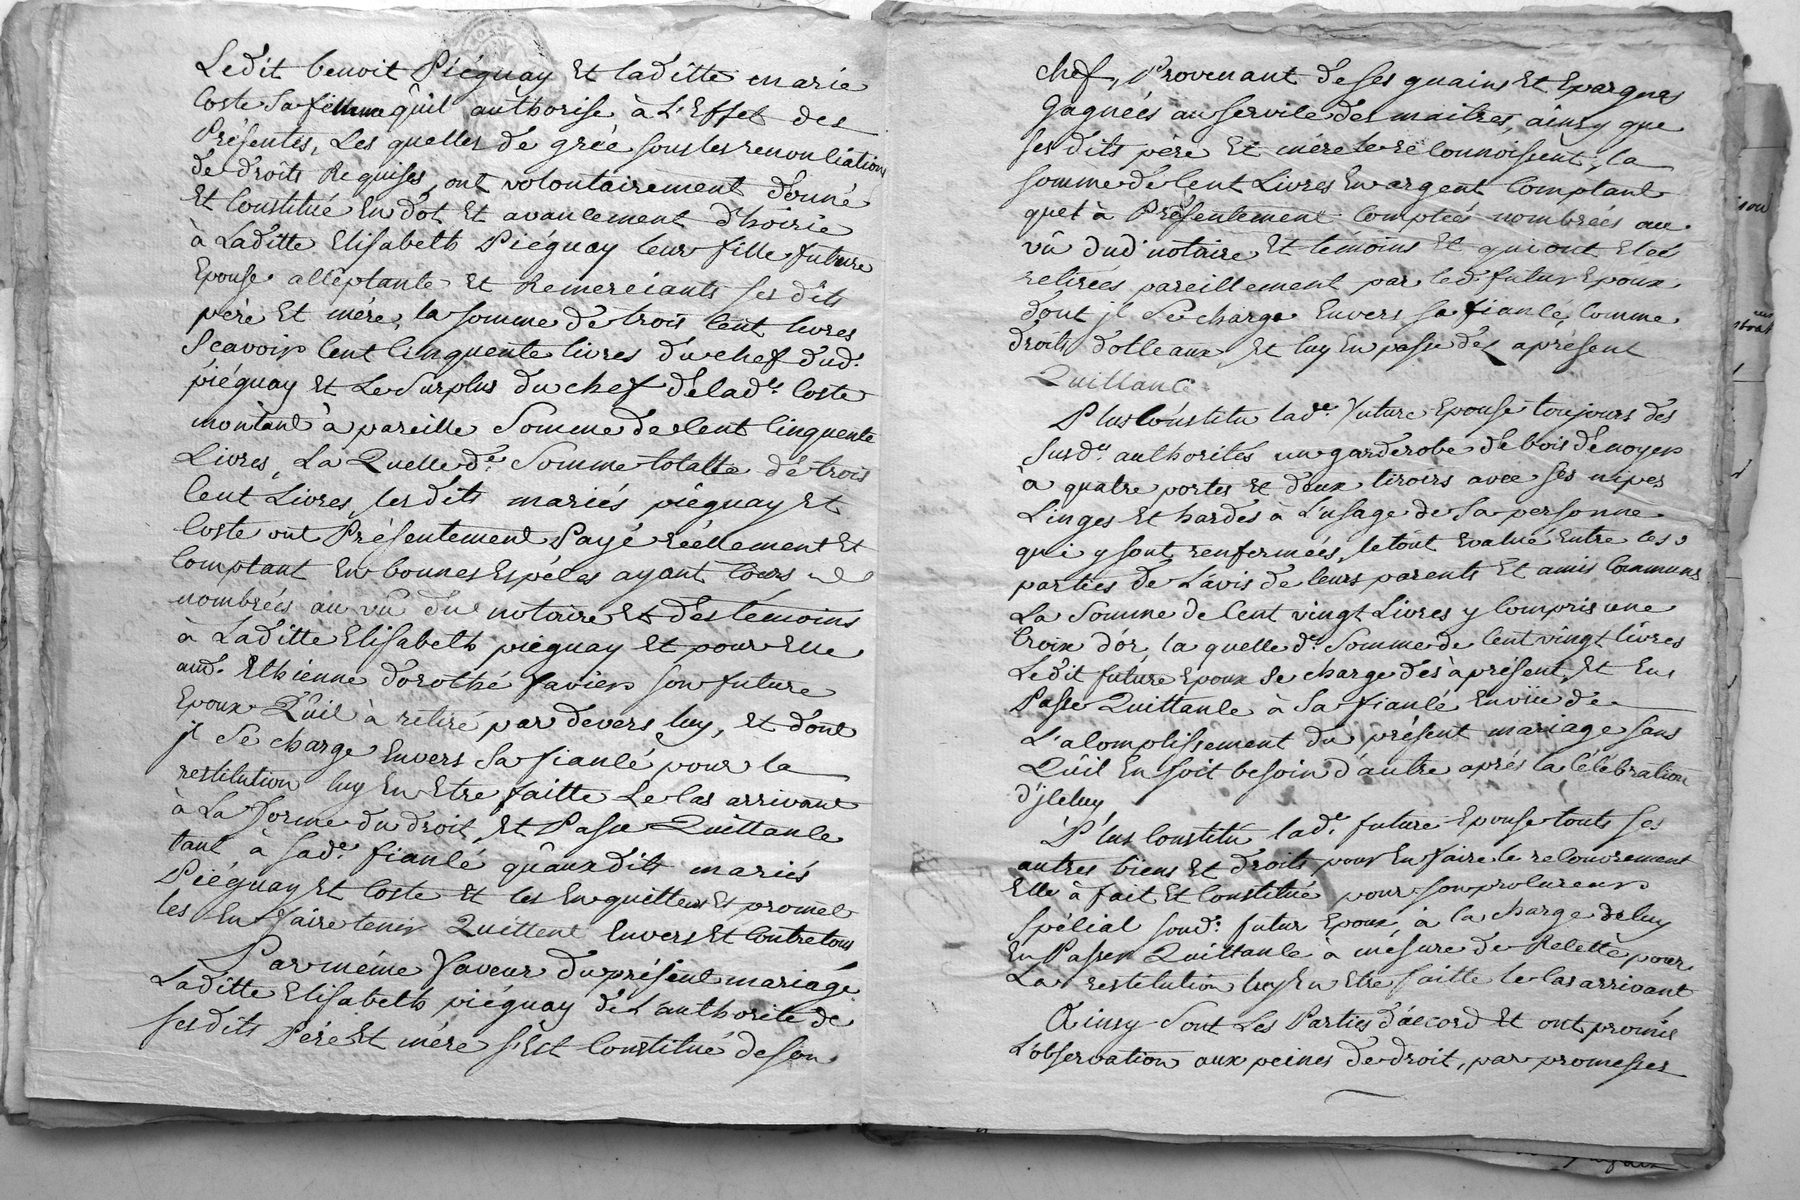 Ledit benoit Piéguay Et laditte marie
Coste sa femme qûil authorise à L'Effet des
Présentes, Les quelles de grée sous les renonciations
de droits Requises, ont volontairement donné
Et Constitué En dot Et avancement d'hoirie
à Laditte Elisabeth Piéguay leur fille future
Epouse acceptante Et Remerciants ses dits
père Et mére, la somme de trois Cent livres
Scavoir Cent Cinquente livres du chef dud.
piéguay Et Le Surplus du chef de lad.te Coste
montant à pareille Somme de Cent Cinquente
Livres, La Quelle d.e Somme totalle de trois
Cent Livres, les dits mariés piéguay Et
Coste ont Présentement Payé réellement Et
Comptant En bonnes Espéces ayant Cours
nombrées au vû du notaire Et des témoins
à Laditte Elisabeth piéguay Et pour Elle
aud. Ethienne dorothé favier son future
Epoux Qûil à retiré par devers luy, Et dont
jl Se charge Envers Sa fiancé pour la
restitution luy En Etre faitte Le Cas arrivant
à La forme du droit, Et Passe Quittance
tant à sad.e fiancé qûauxdits mariés
Piéguay Et Coste Et les En quitte Et promet
les En faire tenir Quittent Envers Et Contre tous
Par même faveur du présent mariage
Laditte Elisabeth piéguay de L'authorité de
ses dits Pére Et mére s'Est Constitué de son
chef, Provenant de ses guains Et Epargnes
Gagnées au service des maitres, ainsy que
ses dits pére Et mére le réConnoissent, la
somme de Cent Livres En argent Comptant
quet à Présentement Comptées nombrées au
vû dud. notaire Et témoins Et qui ont Etés
retirées pareillement par led. futur Epoux
dont jl Se charge Envers sa fiancé, Comme
droits dotteaux, Et luy En passe dès aprésent
Quittance
Plus Constitu lad.e future Epouse toujours des
susd.es authorités un garderobe de bois de noyer
à quatre portes Et deux tiroirs avec ses nipes
Linges Et hardes à L'usage de Sa personne
qui y sont renfermées, le tout Evalué Entre les
parties de L'avis de leurs parents Et amis Communs
La Somme de Cent vingt Livres y Compris une
Croix d'or, la quelle d.e Somme de Cent vingt livres
Ledit future Epoux Se charge dès àprésent, Et En
Passe Quittance à Sa fiancé En vüe de
L'acomplissement du présent mariage sans
Qûil En soit besoin d'autre aprés la Célébration
d'jCeluy
Plus Constitu lad.e future Epouse touts ses
autres biens Et droits, pour En faire le recouvrement
Elle à fait Et Constitué pour son procureur
spécial sond. futur Epoux, à la charge de luy
En Passer Quittance à mésure de Recette, pour
La restitution luy En Etre faitte le Cas arrivant
Ainsy Sont Les Parties d'accord Et ont promis
L'observation aux peines de droit, par promesses